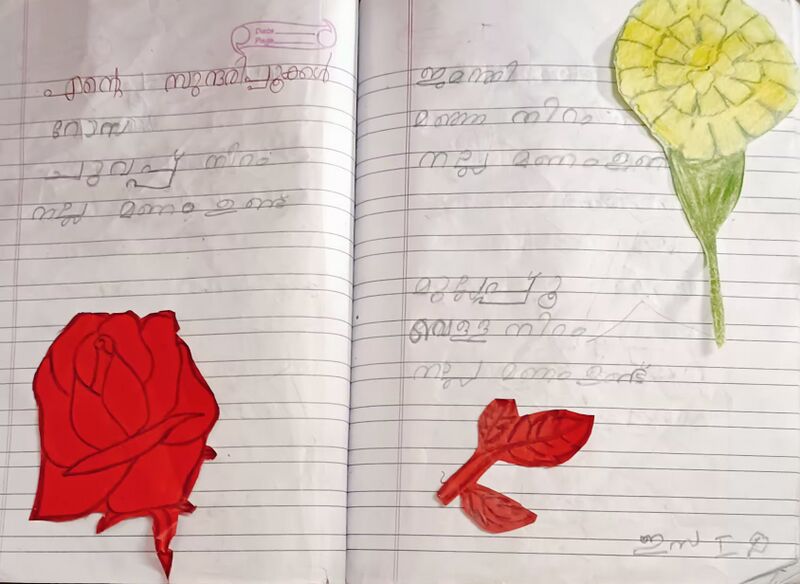 Date
Page
എന്റെ സുന്ദരിപ്പൂക്കൾ
റോസ
ചുവപ്പ് നിറം
നല്ല മണം ഉണ്ട്
ജമന്തി
മഞ്ഞ നിറം
നല്ല മണം ഉണ്ട്
മുല്ലപ്പൂ
വെള്ള നിറം
നല്ല മണം ഉണ്ട്
ഇസ I